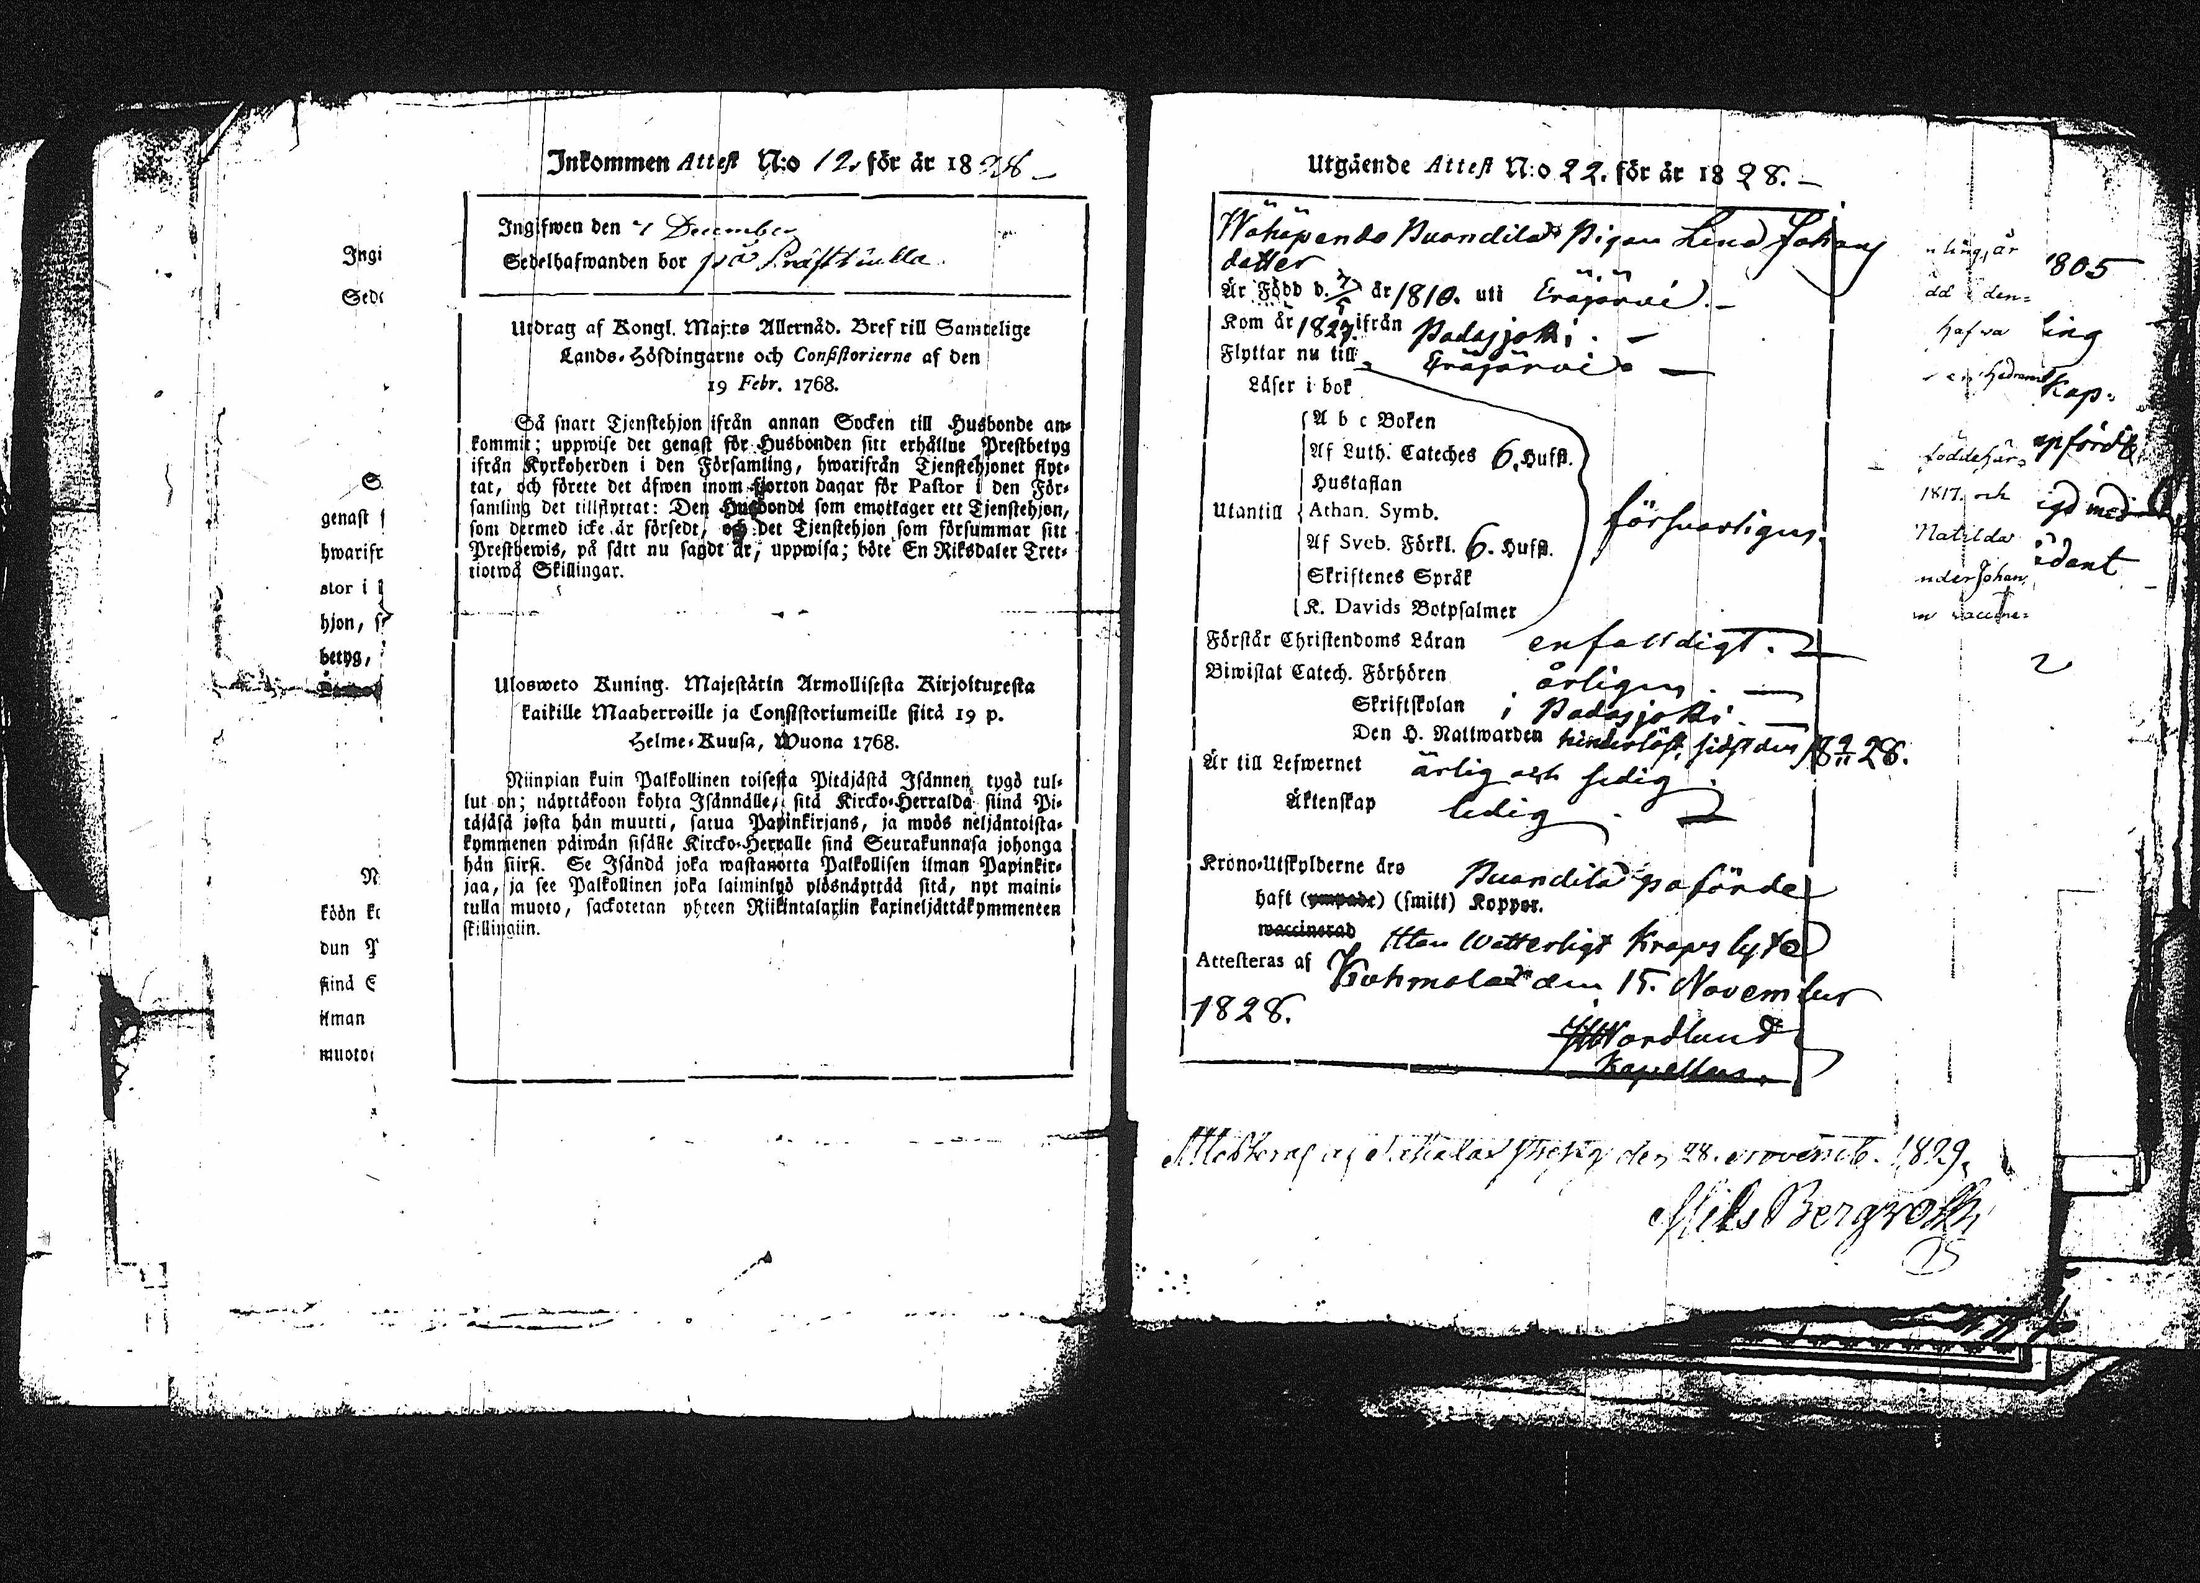 Inkommen Attest N:o 12. för år 1828
Ingifwen den 7 December
Sedelhafwanden bor på
Utdrag af Kongl. Maj:ts Allernåd. Bref till Samtelige
Lands-Höfdingarne och Consistorierne af den
19 Febr. 1768.
Så snart Tjenstehjon ifrån annan Socken till Husbonde an-
kommit; uppwise det genast för Husbonden sitt erhållne Prestbetyg
ifrån Kyrkoherden i den Församling, hwarifrån Tjenstehjonet flyt-
tat, och förete det äfwen inom fjorton dagar för Pastor i den För-
samling det tillflyttat: Den Husbonde som emottager ett Tjenstehjon,
som dermed icke är försedt, och det Tjenstehjon som försummar sitt
Prestbewis, på sätt nu sagdt är, uppwisa; böte En Riksdaler Tret-
tiotwå Skillingar.
Ulosweto Kuning. Majestätin Armollisesta Kirjoituxesta
kaikille Maaherroille ja Consistoriumeille siitä 19 p.
Helme-Kuusa, Wuona 1768.
Niinpian kuin Palkollinen toisesta Pitäjästä Isännen tygö tul-
lut on; näyttäkoon kohta Isännälle, sitä Kircko-Herralda siinä Pi-
täjäsä josta hän muutti, saatua Papinkirjans, ja myös neljäntoista-
kymmenen päiwän sisälle Kircko-Herralle sinä Seurakunnasa johonga
hän siirsi. Se Isändä joka wastanotta Palkollisen ilman Papinkir-
jaa, ja see Palkollinen joka laiminlyö ylösnäyttää sitä, nyt maini-
tulla muoto, sackotetan yhteen Riikintalariin kaxineljättäkymmeneen
skillingiin.
Ingi
Sede
S
genast
hwarifr
stor i
hjon,
betyg,
N
köön ko
dun
siinä
ilman
muotoi
Utgående Attest N:o 22. för år 1828.
Wähäpendo Puandila Pigan Lena Johans
dotter
Är Född d. 7/5 år 1810. uti Eräjärvi
Kom år 1827 ifrån Padasjoki
Flyttar nu till Eräjärvi
Läser i bok
A b c Boken
Af Luth. Cateches 6. Hufst.
Hustaflan
Utantill Athan. Symb. försvarligen
Af Sveb. Förkl. 6. Hufst.
Skriftenes Språk
K. Davids Botpsalmer
Förstår Christendoms Läran enfalldigt.
Biwistat Catech. Förhören årligen
Skriftskolan i Padasjoki
Den H. Nattwarden hinderlöst, sidst den 18 9/11 28.
Är till Lefwernet ärlig och sedig
Äktenskap ledig
Krono-Utskylderne äro Puandila påförde
haft (ympade) (smitt) Koppor.
waccinerad Utan Watterligt Krops lyte
Attesteras af Kuhmalax den 15. November
1828.
Nordlund
Kapellan.
den 28. novemb. 1829.
Nils Bergroth
1805
den=
hafwa
ling
Kap=
född
påförde
1817. och
med
Matilda
Johan